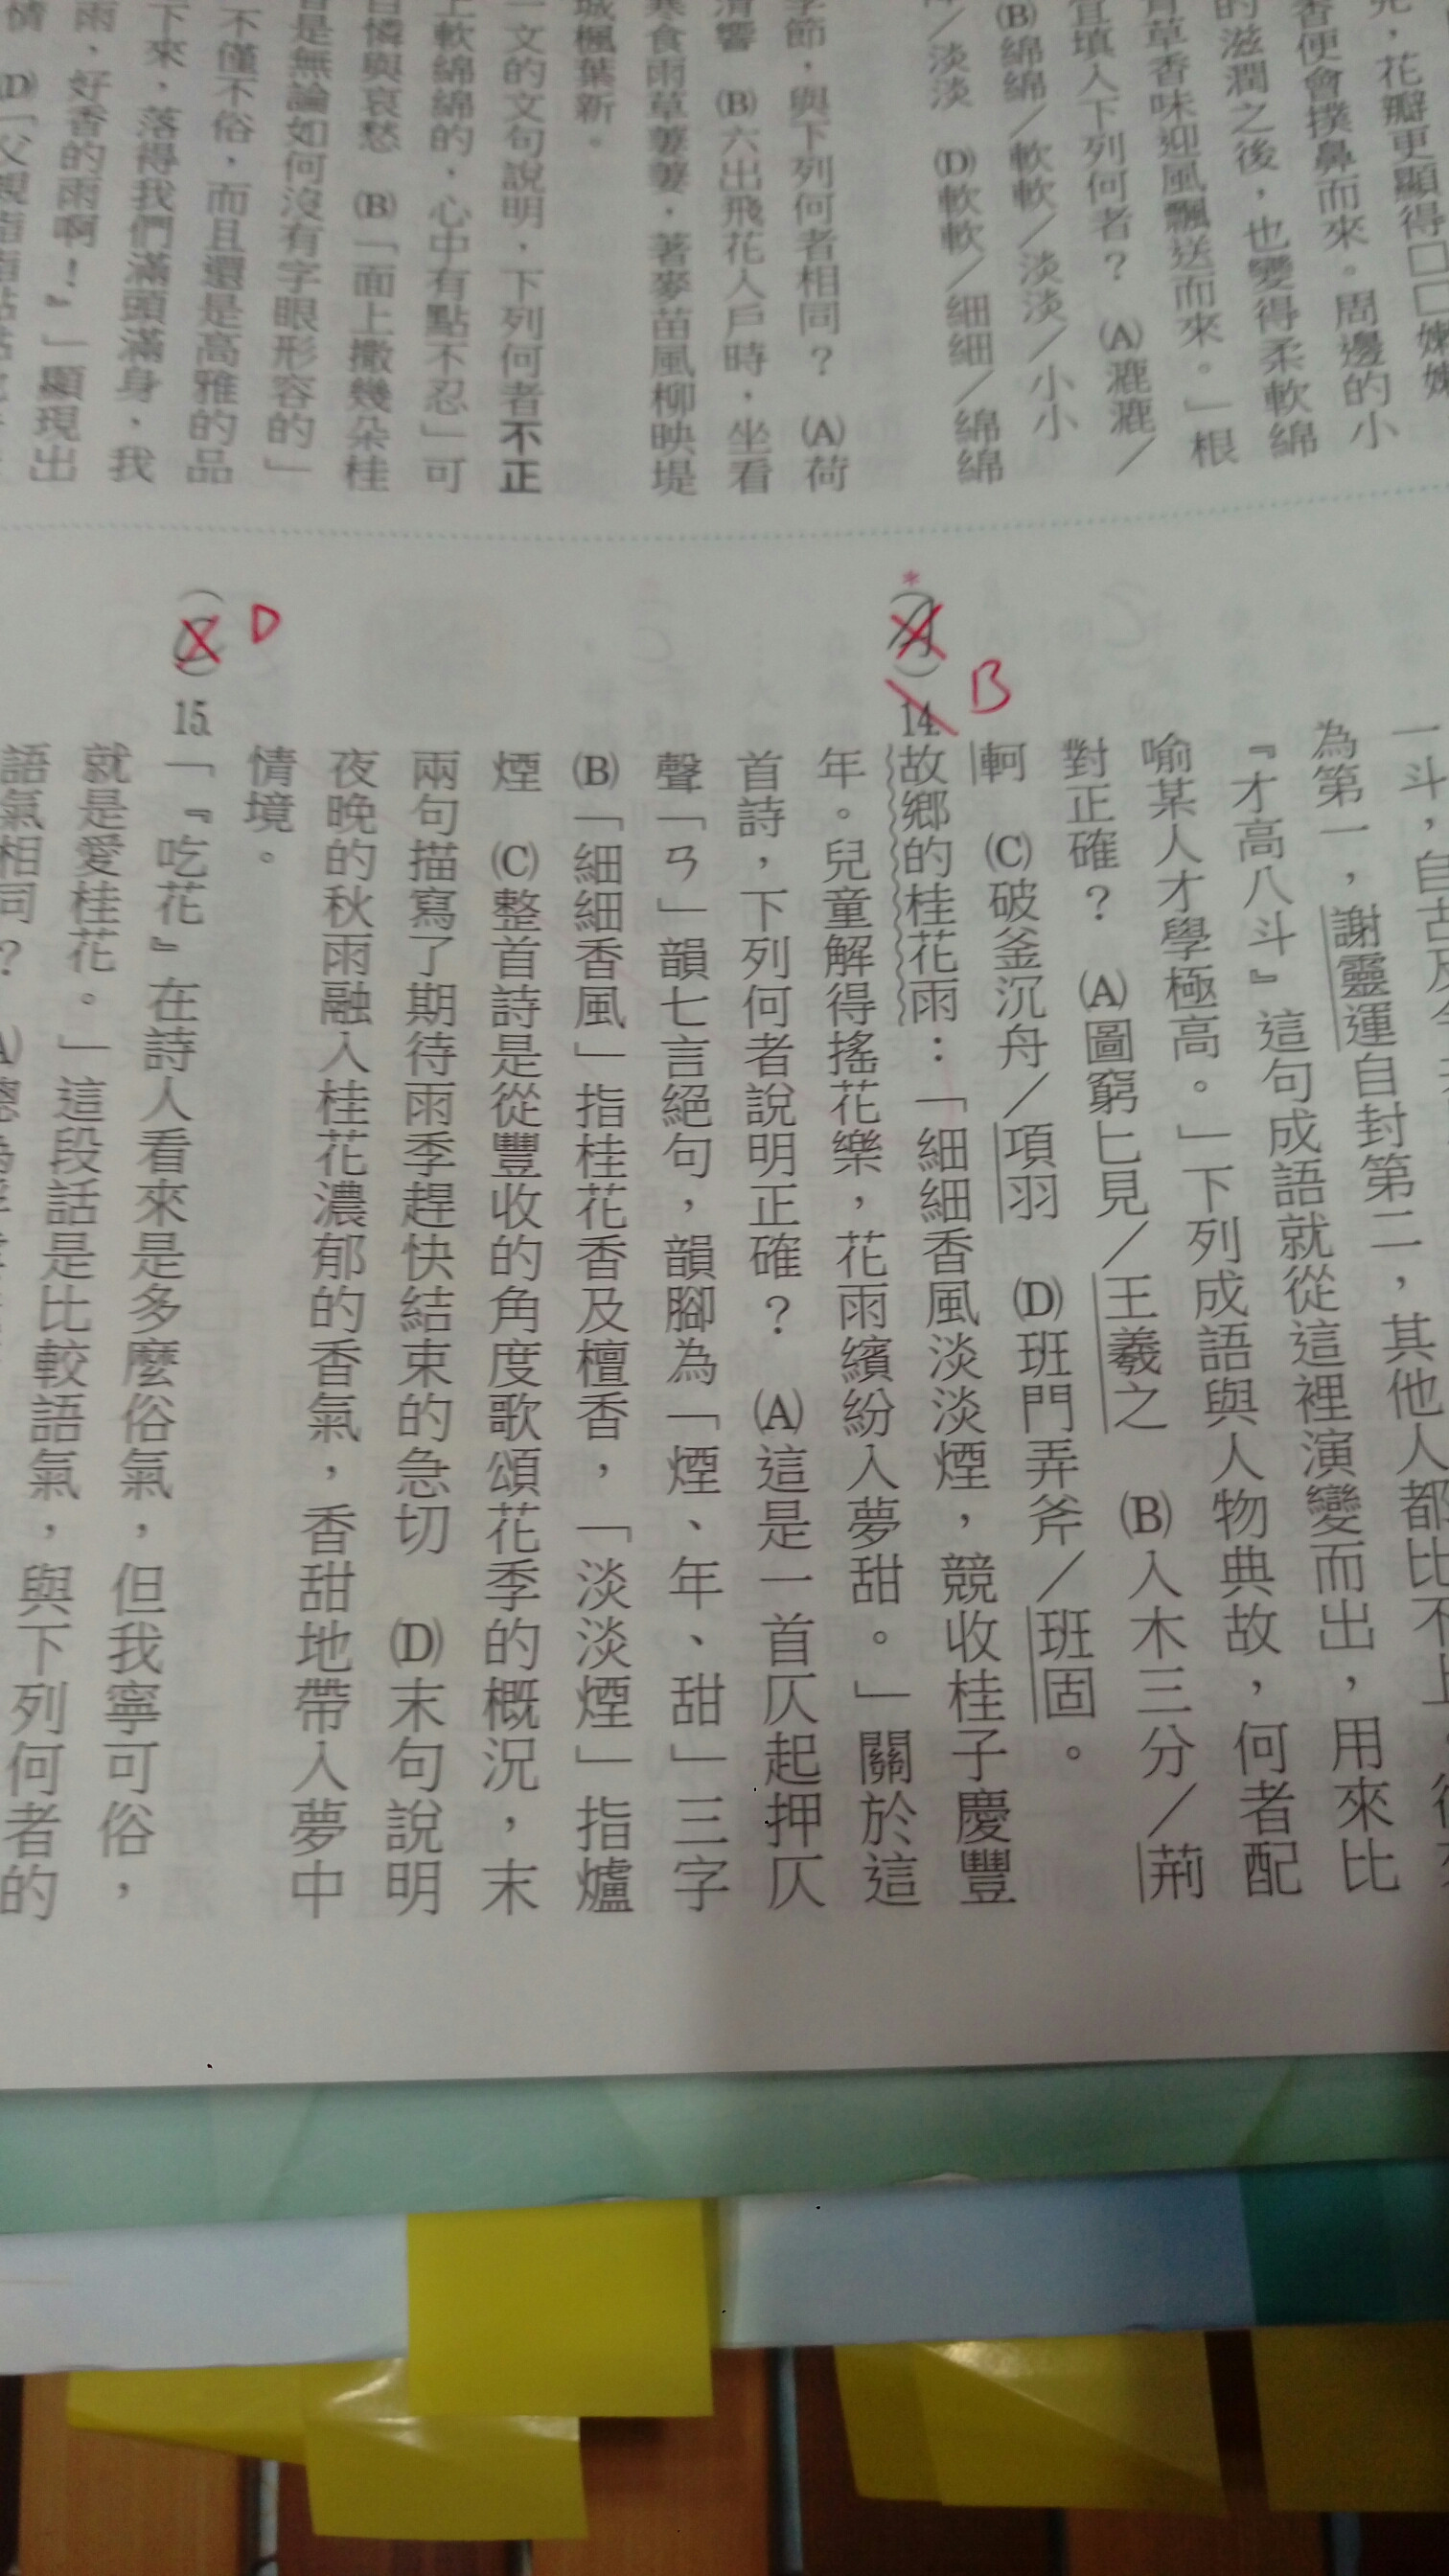 兒，花瓣更顯得□□嫩嫩
香便會撲鼻而來。周邊的小
的滋潤之後，也變得柔軟綿
青草香味迎風飄送而來。」根
宜填入下列何者？　(A)灑灑／
(B)綿綿／軟軟／淡淡／小小
／淡淡　(D)軟軟／細細／綿綿
季節，與下列何者相同？　(A)荷
清響　(B)六出飛花入戶時，坐看
寒食雨草萋萋，著麥苗風柳映堤
城楓葉新。
一文的文句說明，下列何者不正
上軟綿綿的，心中有點不忍」可
自憐與哀愁　(B)「面上撒幾朵桂
皆是無論如何沒有字眼形容的」
不僅不俗，而且還是高雅的品
下來，落得我們滿頭滿身，我
雨，好香的雨啊！』」顯現出
情　(D)「父親指指點點
一斗，自古及今
為第一，謝靈運自封第二，其他人都比不上。後來
『才高八斗』這句成語就從這裡演變而出，用來比
喻某人才學極高。」下列成語與人物典故，何者配
對正確？　(A)圖窮匕見／王羲之　(B)入木三分／荊
軻　(C)破釜沉舟／項羽　(D)班門弄斧／班固。
B
14.故鄉的桂花雨：「細細香風淡淡煙，競收桂子慶豐
年。兒童解得搖花樂，花雨繽紛入夢甜。」關於這
首詩，下列何者說明正確？　(A)這是一首仄起押仄
聲「ㄢ」韻七言絕句，韻腳為「煙、年、甜」三字
(B)「細細香風」指桂花香及檀香，「淡淡煙」指爐
煙　(C)整首詩是從豐收的角度歌頌花季的概況，末
兩句描寫了期待雨季趕快結束的急切　(D)末句說明
夜晚的秋雨融入桂花濃郁的香氣，香甜地帶入夢中
情境。
D
15.「『吃花』在詩人看來是多麼俗氣，但我寧可俗，
就是愛桂花。」這段話是比較語氣，與下列何者的
語氣相同？　(A)總為浮